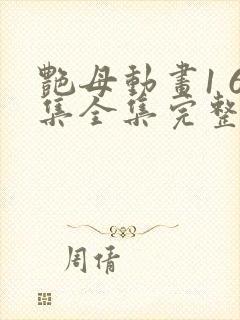 艷母動畫1 6
集全集完整
周倩